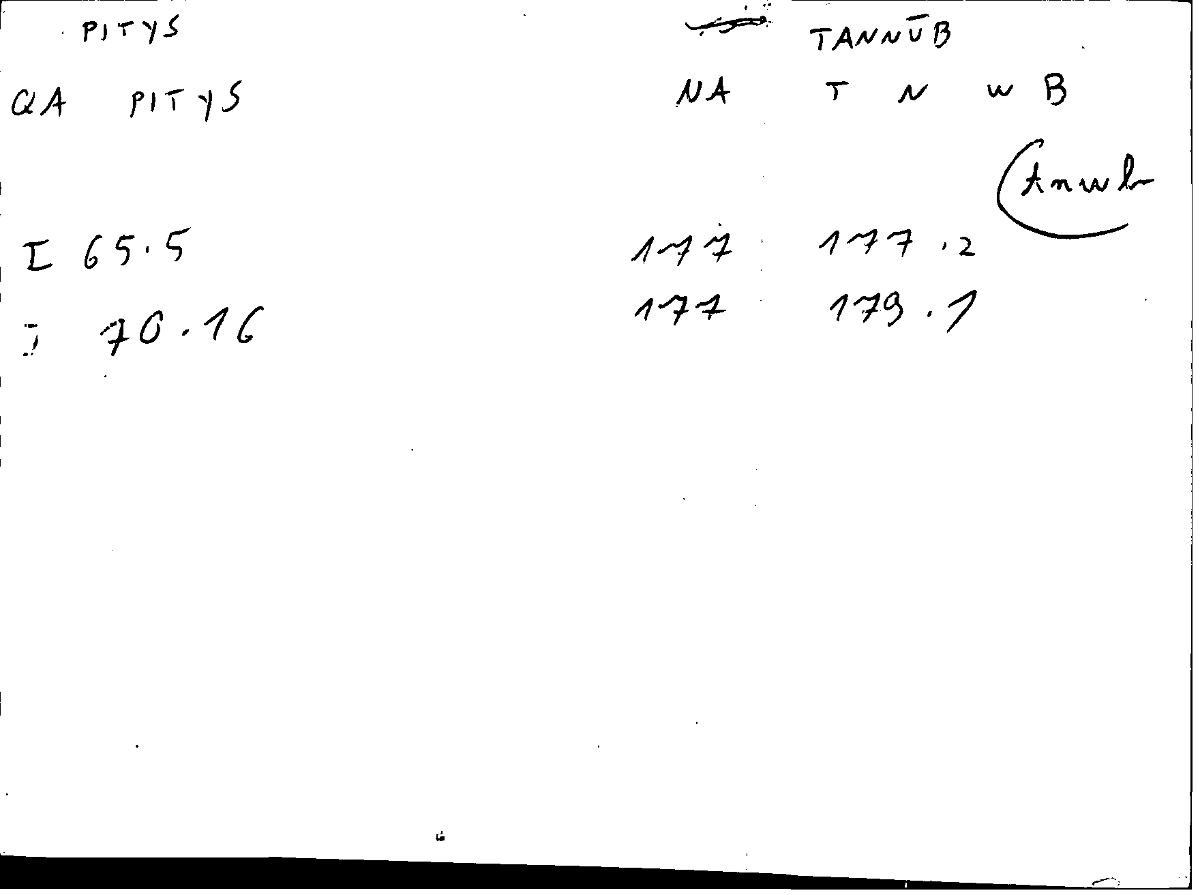 PITYS TANNŪB
QA PITYS NA T N W B
tnwb
I 65.5 177 177.2
70.16 177 179.1